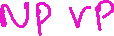 NP VP